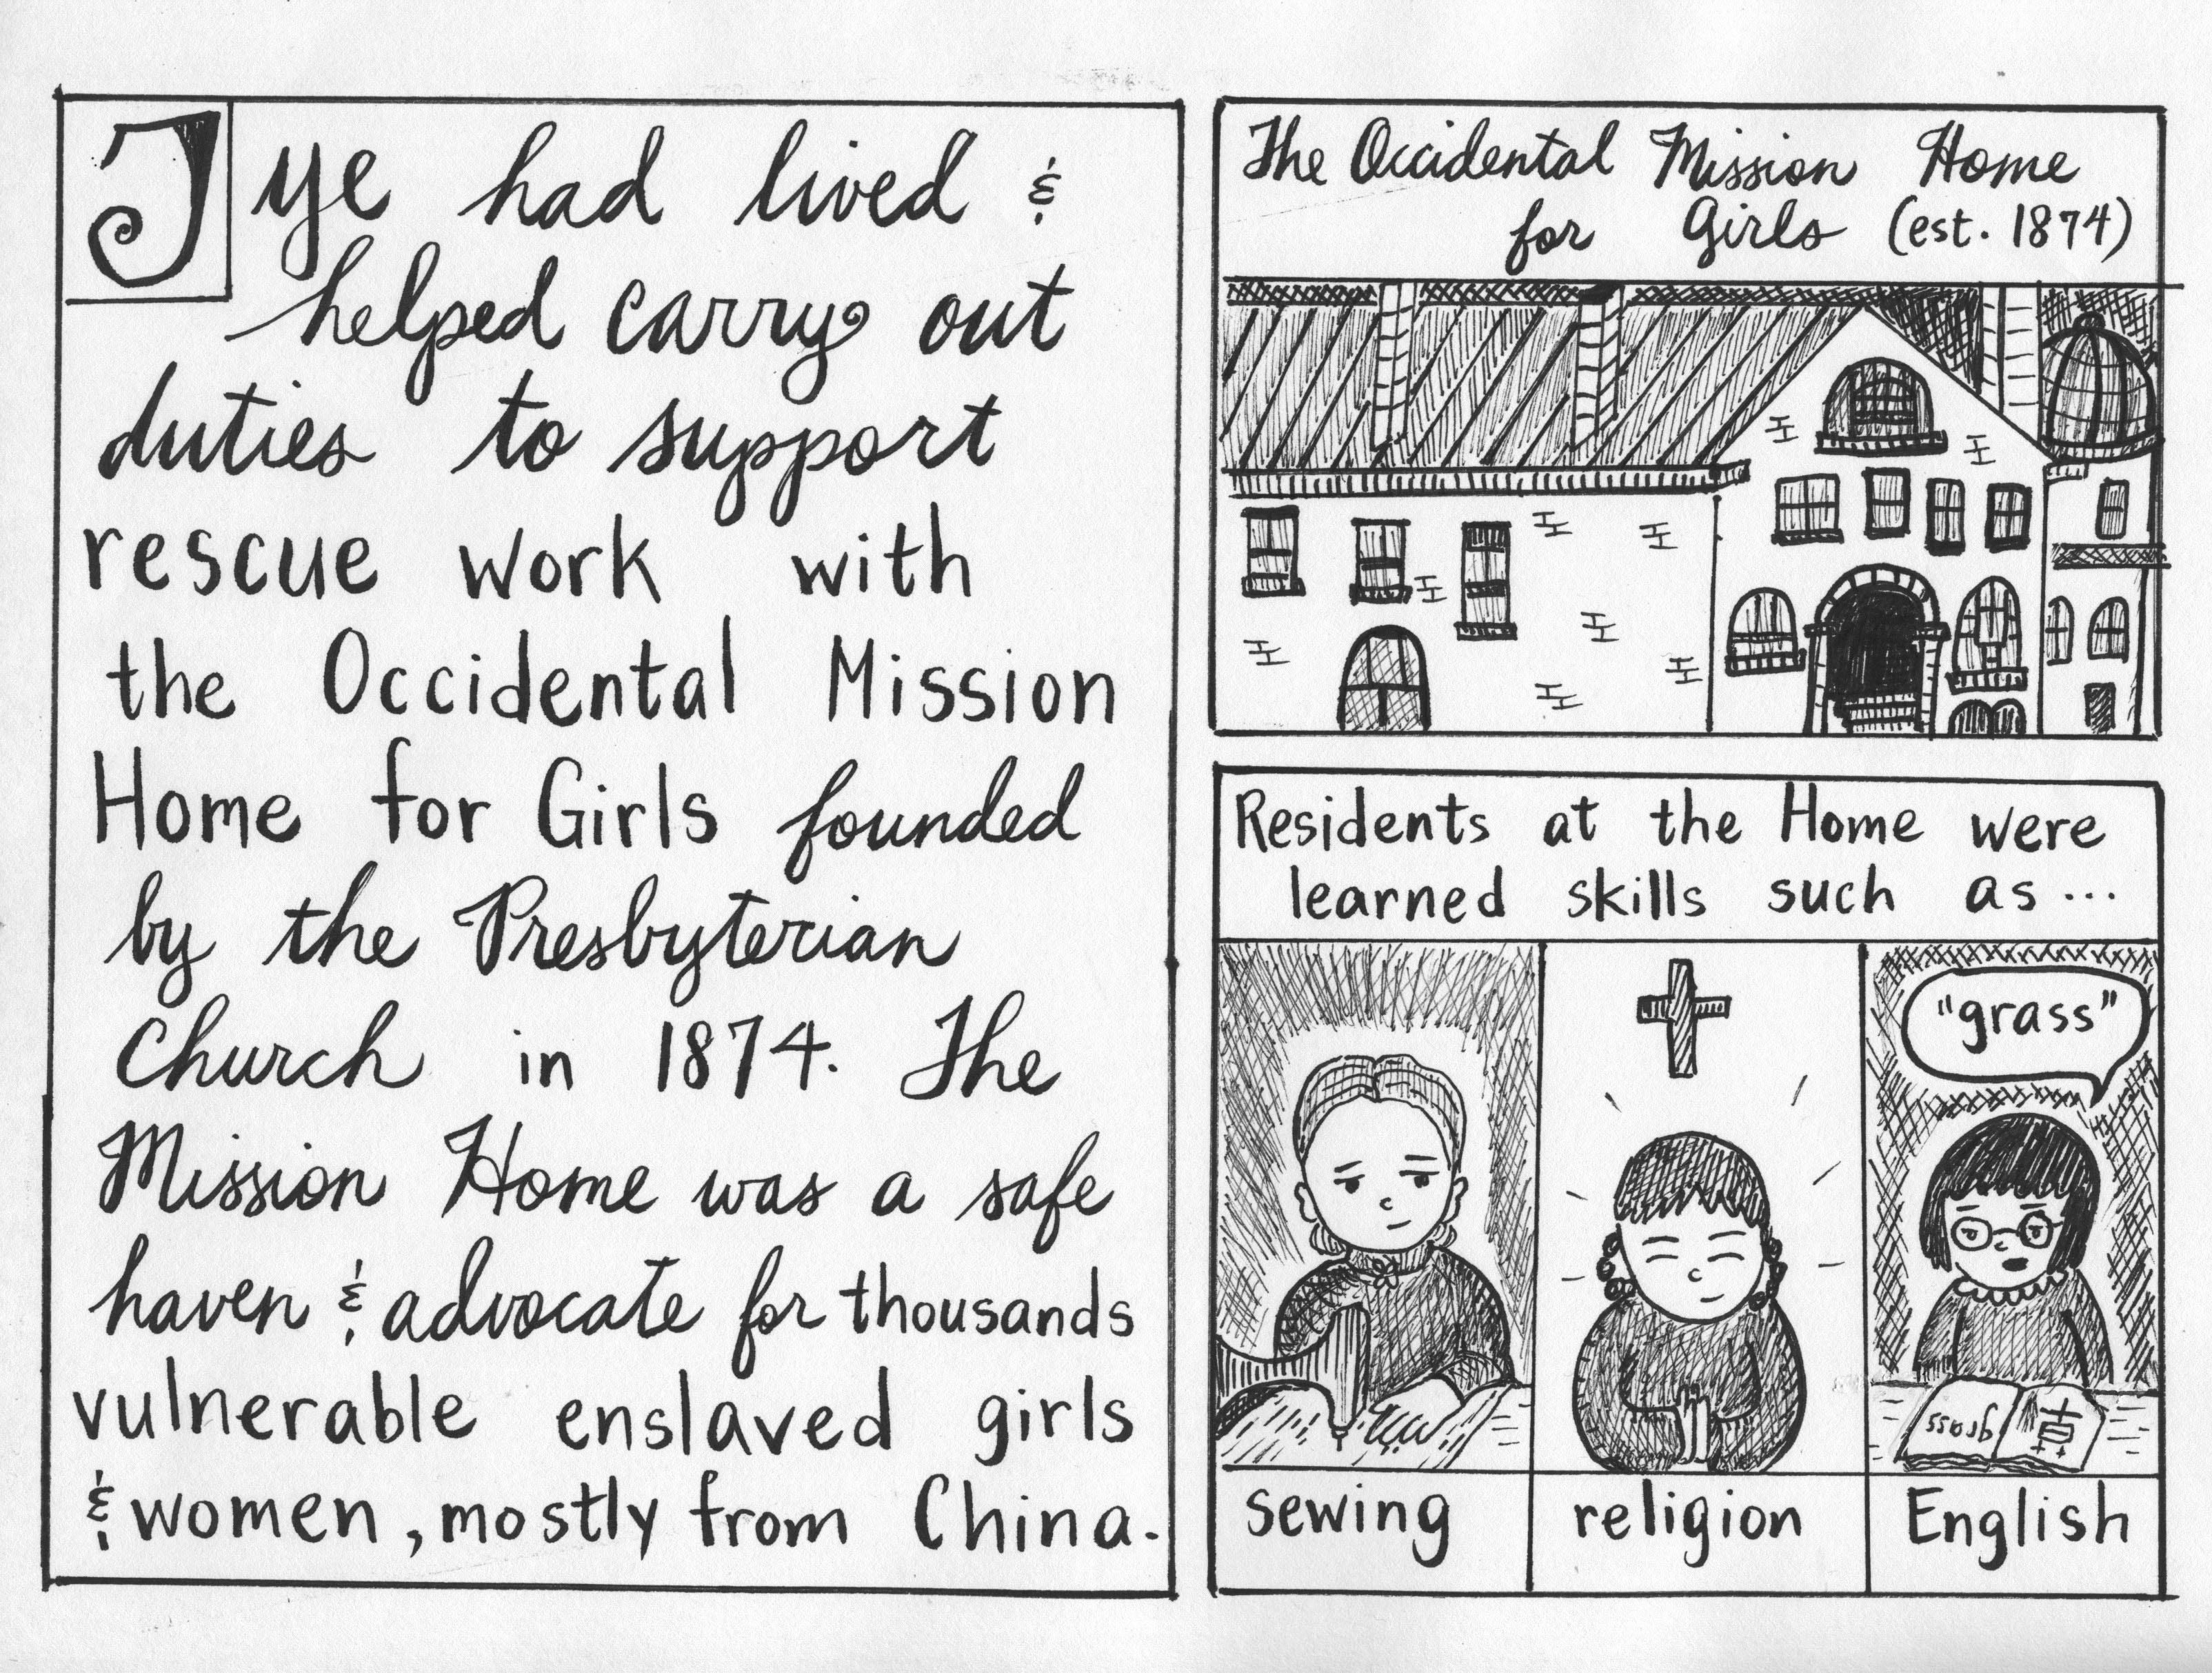 Tye had lived &
helped carry out
duties to support
rescue work with
the Occidental Mission
Home for Girls founded
by the Presbyterian
Church in 1874. The
Mission Home was a safe
haven & advocate for thousands
vulnerable enslaved girls
& women, mostly from China.
The Occidental Mission Home
for Girls (est. 1874)
Residents at the Home were
learned skills such as...
"grass"
grass
sewing
religion
English